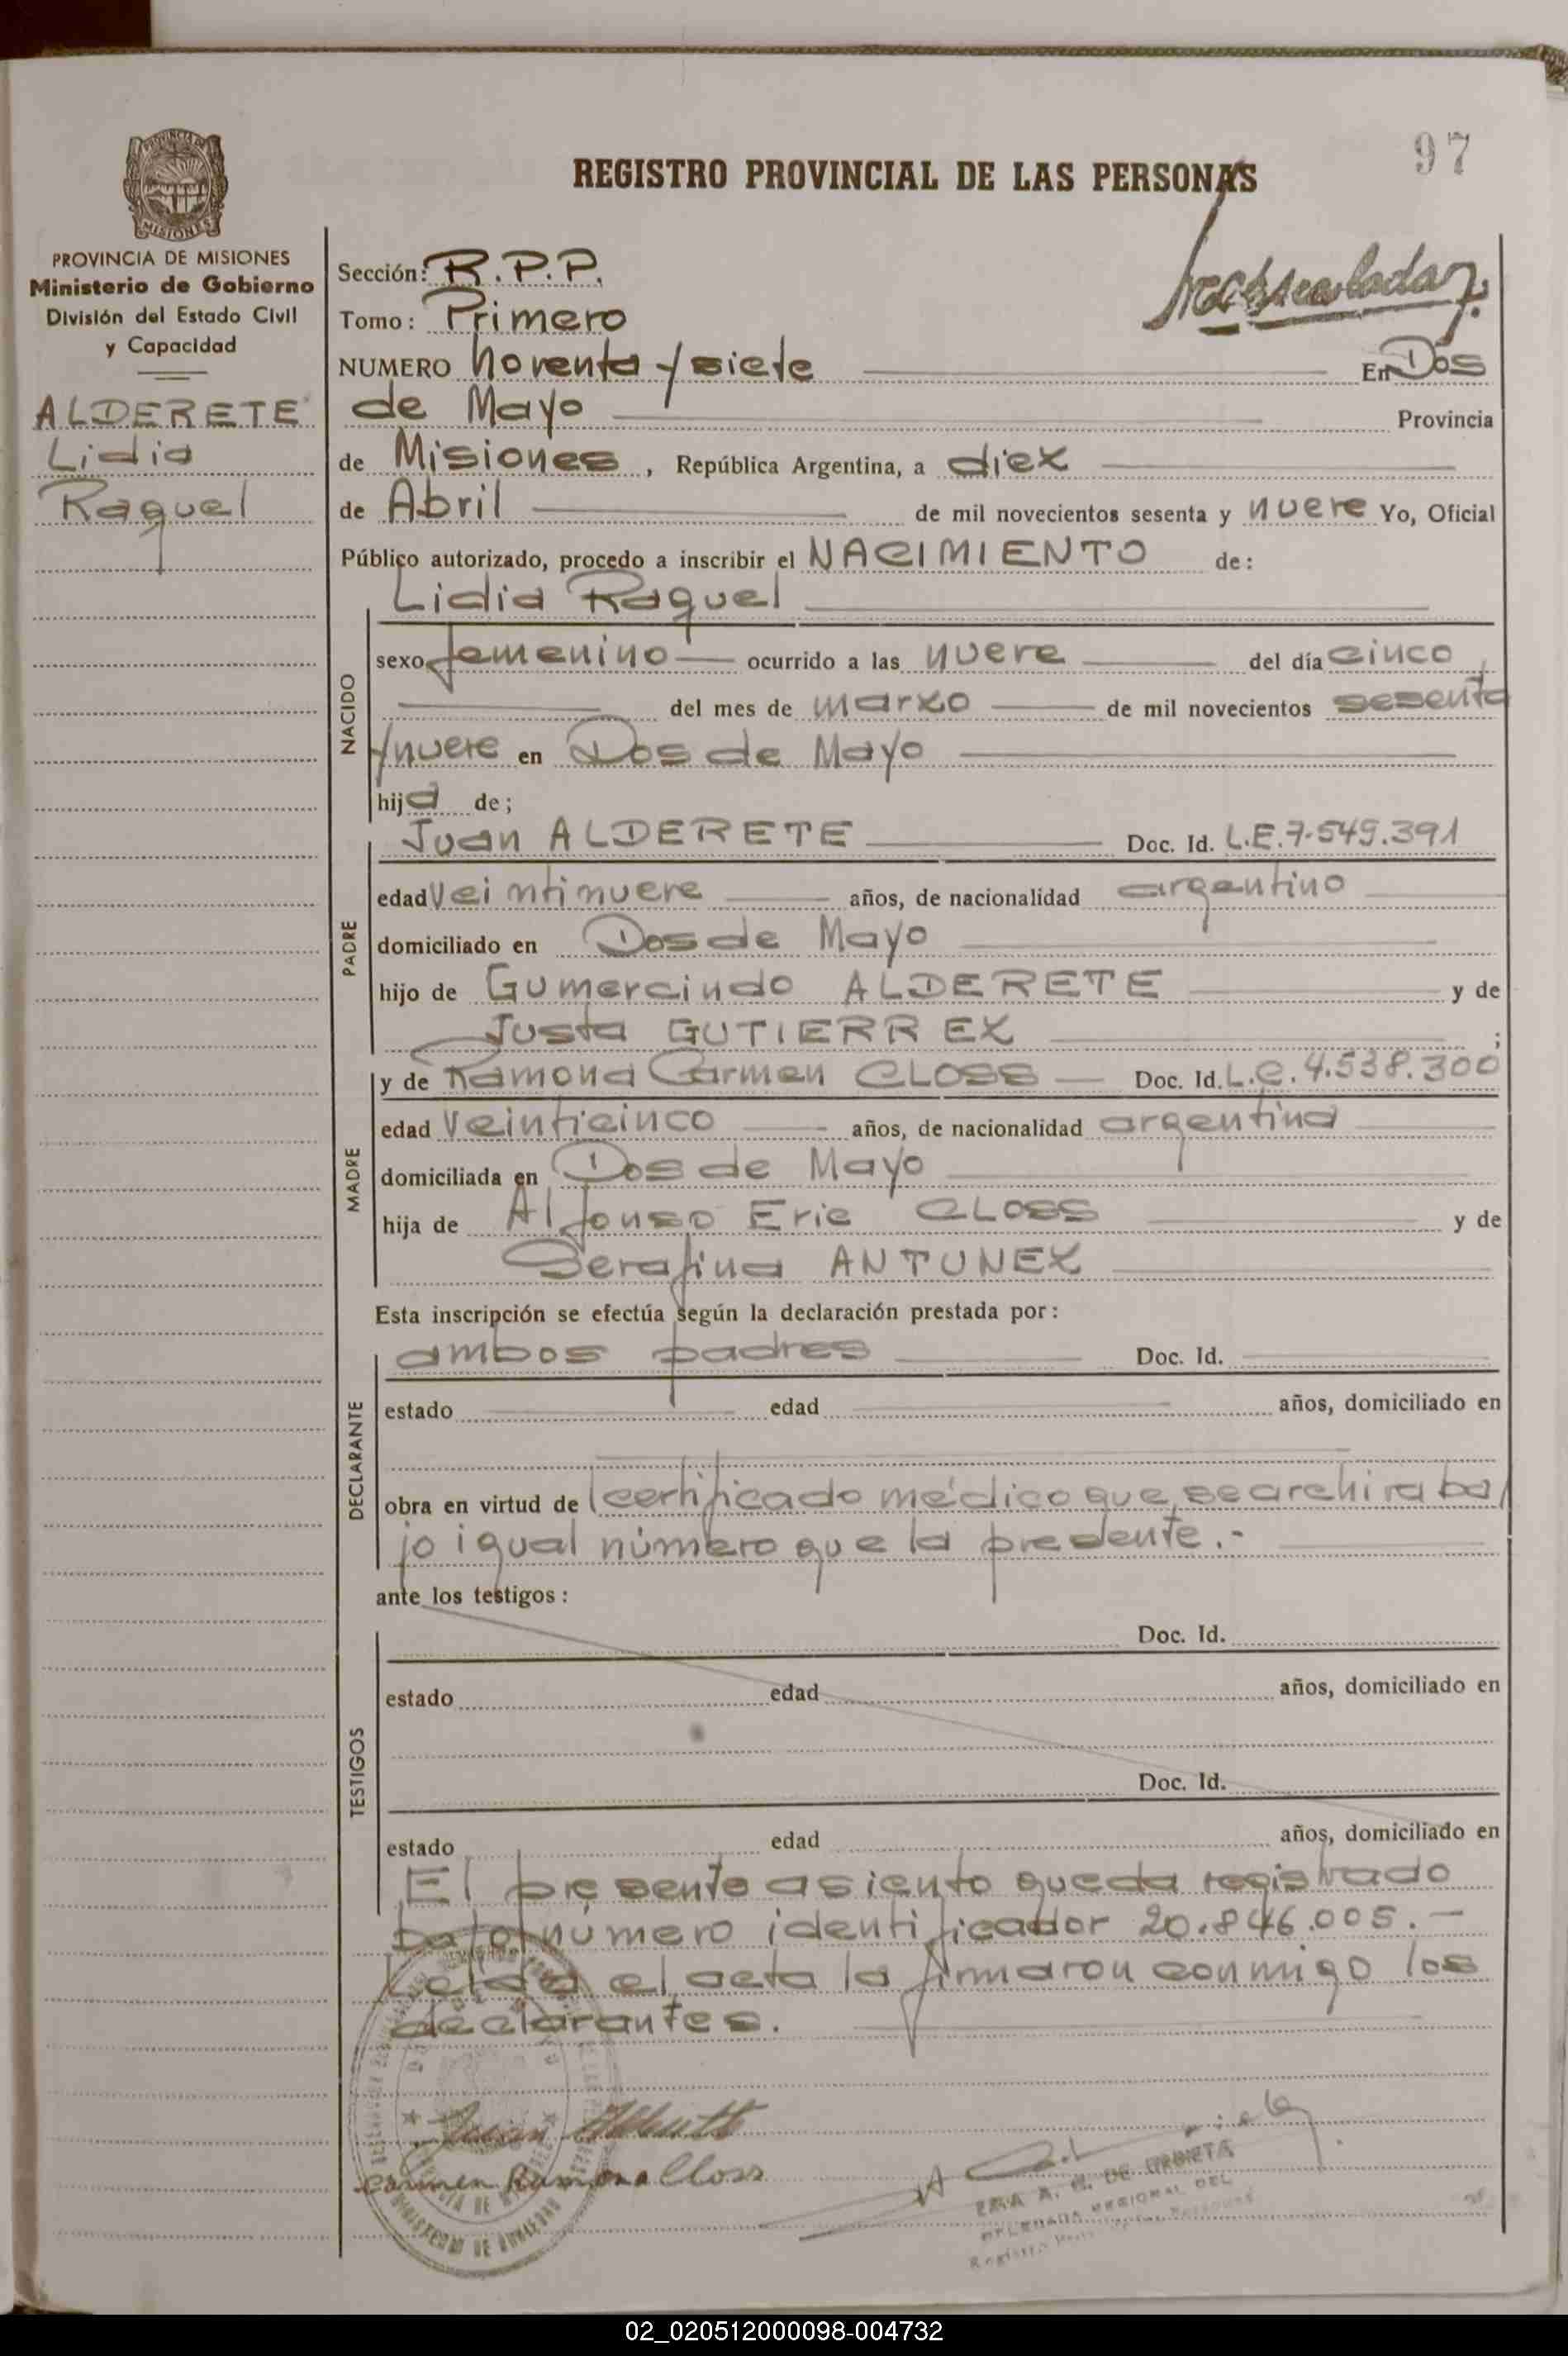 97
REGISTRO PROVINCIAL DE LAS PERSONAS
PROVINCIA DE MISIONES
Ministerio de Gobierno
División del Estado Civil
y Capacidad
ALDERETE
Lidia
Raquel
Sección: R.P.P.
Tomo: Primero
NUMERO Noventa y siete En Dos
de Mayo Provincia
de Misiones, República Argentina, a diez
de Abril de mil novecientos sesenta y nueve Yo, Oficial
Público autorizado, procedo a inscribir el NACIMIENTO de:
Lidia Raquel
NACIDO
sexo femenino ocurrido a las nueve del día cinco
del mes de marzo de mil novecientos sesenta
y nueve en Dos de Mayo
hija de;
PADRE
Juan ALDERETE Doc. Id. L.E. 7.549.391
edad veintinueve años, de nacionalidad argentino
domiciliado en Dos de Mayo
hijo de Gumercindo ALDERETE y de
Justa GUTIERREZ ;
MADRE
y de Ramona Carmen CLOSS Doc. Id. L.C. 4.538.300
edad veinticinco años, de nacionalidad argentina
domiciliada en Dos de Mayo
hija de Alfonso Eric CLOSS y de
Serafina ANTUNEZ
Esta inscripción se efectúa según la declaración prestada por:
DECLARANTE
ambos padres Doc. Id.
estado edad años, domiciliado en
obra en virtud de certificado médico que se archiva ba
jo igual número que la presente.-
ante los testigos:
TESTIGOS
Doc. Id.
estado edad años, domiciliado en
Doc. Id.
estado edad años, domiciliado en
El presente asiento queda registrado
bajo número identificador 20.846.005.-
Leída el acta la firmaron conmigo los
declarantes.
Carmen Ramona Closs
A. G. DE URRIETA
DELEGADA REGIONAL DEL
02_020512000098-004732